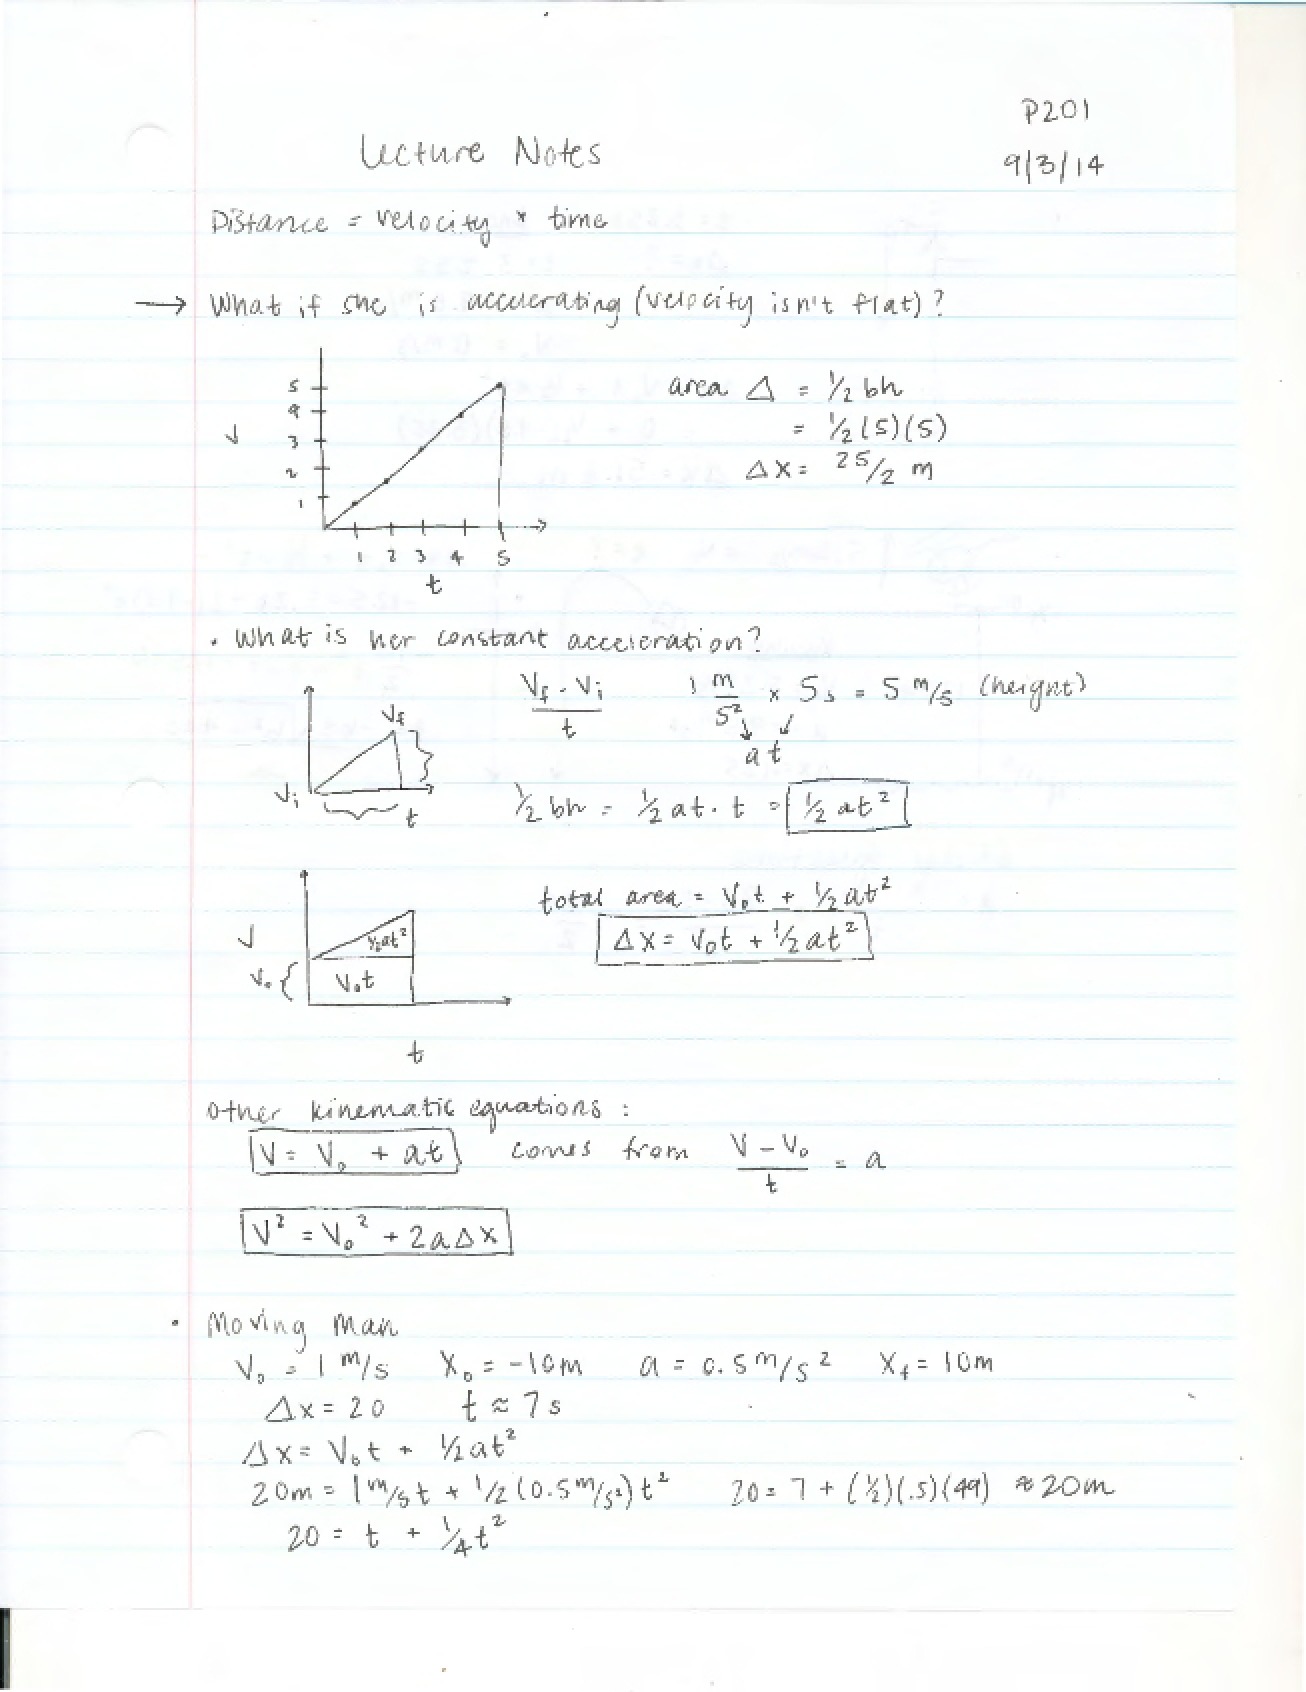 P201
Lecture Notes
9/3/14
Distance = velocity * time
→ What if she is accelerating (velocity isn't flat)?
5
4
3
2
1
V
1 2 3 4 5
t
area Δ = 1/2 bh
= 1/2 (5)(5)
Δx = 25/2 m
• What is her constant acceleration?
Vf
Vi
t
Vf - Vi / t
1 m/s² × 5s = 5 m/s (height)
a t
1/2 bh = 1/2 at · t = 1/2 at²
V
V₀ {
1/2 at²
V₀t
t
total area = V₀t + 1/2 at²
Δx = V₀t + 1/2 at²
Other kinematic equations:
V = V₀ + at comes from V - V₀ / t = a
V² = V₀² + 2aΔx
• Moving Man
V₀ = 1 m/s X₀ = -10m a = 0.5 m/s² Xf = 10m
Δx = 20 t ≈ 7s
Δx = V₀t + 1/2 at²
20m = 1 m/s t + 1/2 (0.5 m/s²) t² 20 = 7 + (1/2)(.5)(49) ≈ 20m
20 = t + 1/4 t²